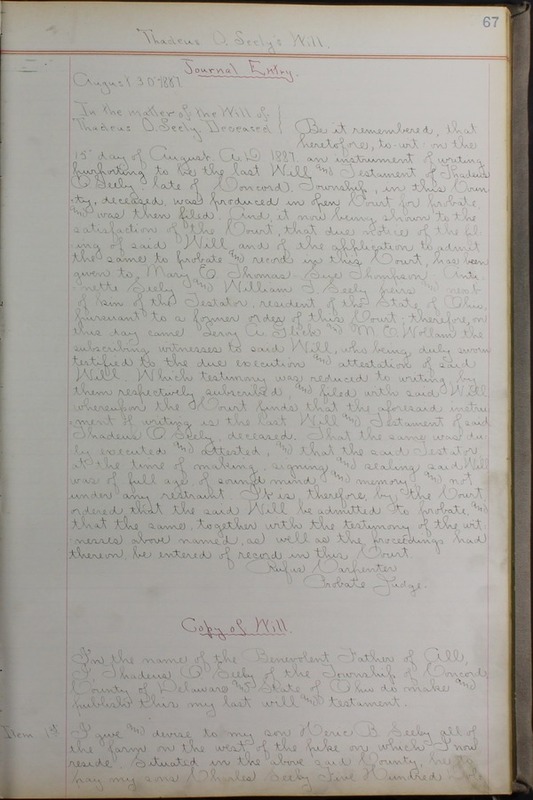 67
Thadeus O. Seely's Will.
Journal Entry.
August 30 1887
In the matter of the Will of
Thadeus O. Seely Deceased
Be it remembered, that
heretofore, to-wit on the
15" day of August A.D. 1887 an instrument of writing
purporting to be the last Will and Testament of Thadeus
O. Seely late of Concord Township, in this Coun
ty, deceased, was produced in open Court for probate,
and was then filed. And it now being shown to the
satisfaction of the Court, that due notice of the fil
ing of said Will, and of the application to admit
the same to probate and record in this Court, has been
given to Mary E. Thomas Thompson
Seely and William Seely heirs and next
of kin of the Testator, resident of the State of Ohio,
pursuant to a former order of this Court, therefore, on
this day came A. and M. C. the
subscribing witnesses to said Will, who being duly sworn
testified to the due execution and attestation of said
Will. Which testimony was reduced to writing, by
them respectively subscribed, and filed with said Will
whereupon the Court finds that the aforesaid instru
ment of writing is the last Will and Testament of said
Thadeus O. Seely, deceased. That the same was du
ly executed and attested, and that the said Testator
at the time of making, signing and sealing said Will
was of full age, of sound mind and memory and not
under any restraint. It is therefore by the Court
ordered that the said Will be admitted to probate and
that the same, together with the testimony of the wit
nesses above named, as well as the proceedings had
thereon be entered of record in this Court
Rufus Carpenter
Probate Judge.
Copy of Will.
In the name of the Benevolent Father of All,
I Thadeus O. Seely of the Township of Concord
County of Delaware and State of Ohio do make and
publish this my last will and testament.
Item 1st I give and devise to my son B. Seely all of
the farm on the west of the pike on which I now
reside. Situated in the above said County, he to
pay my sons Charles Seely Five Hundred